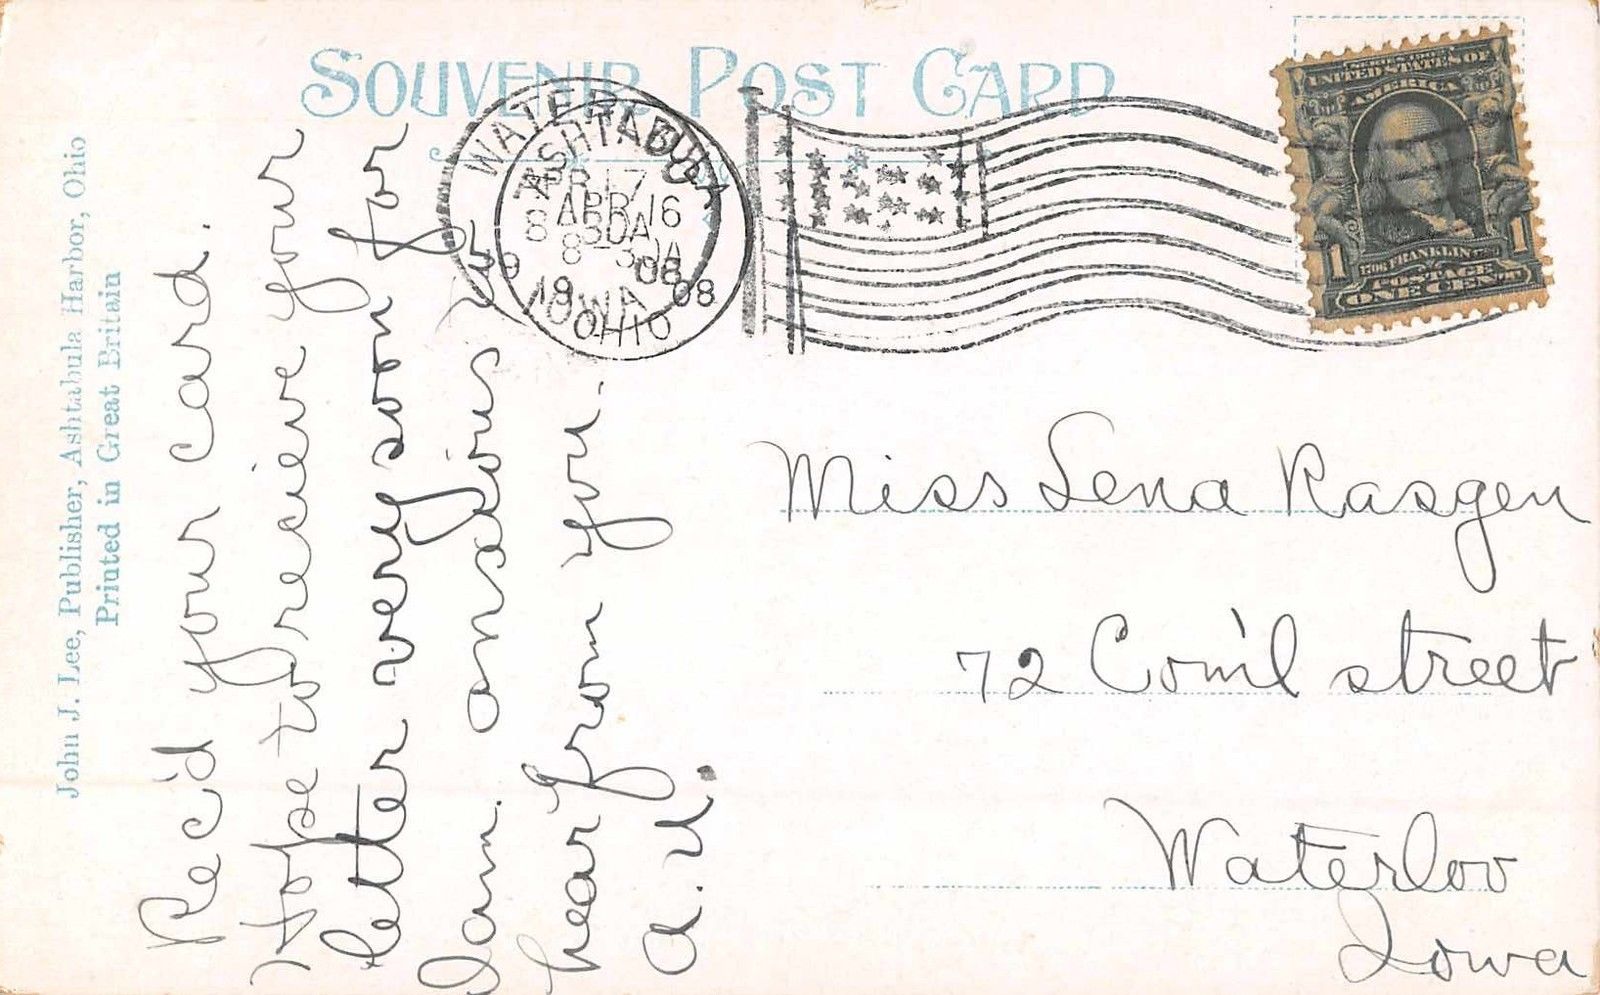 SOUVENIR POST CARD
John J. Lee, Publisher, Ashtabula Harbor, Ohio
Printed in Great Britain
Rec'd your card.
Hope to recieve your
letter very soon for
I am anxious to
hear from you.
A. U.
ASHTABULA
APR 16
8-30A
1908
OHIO
WATERLOO
APR 17
8
IOWA
UNITED STATES OF
AMERICA
1706 FRANKLIN
POSTAGE
1 ONE CENT 1
Miss Lena Rasgen
72 Com'l street
Waterloo
Iowa